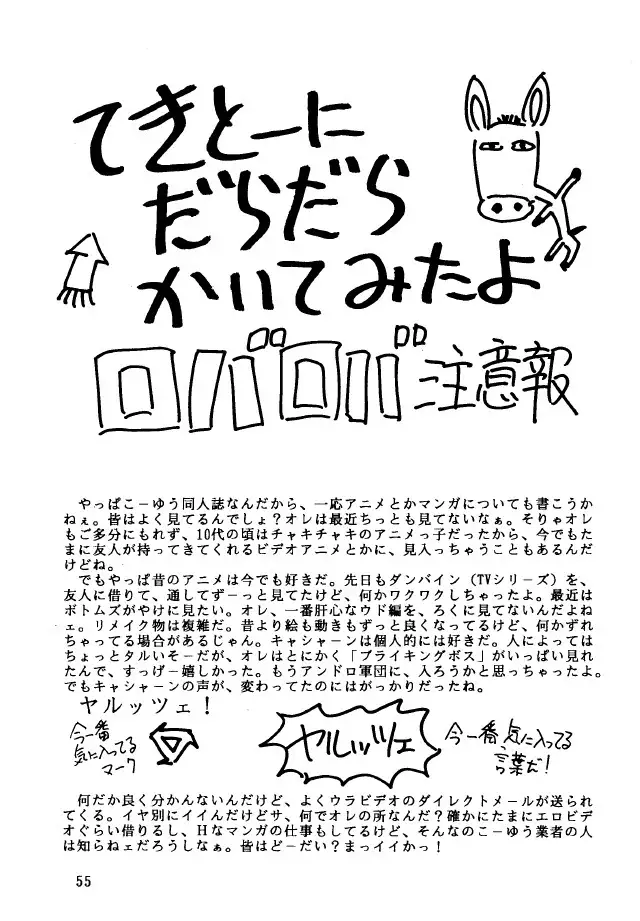 てきとーに
だらだら
かいてみたよ
ロバロバ注意報
やっぱこーゆう同人誌なんだから、一応アニメとかマンガについても書こうか
ねぇ。皆はよく見てるんでしょ？オレは最近ちっとも見てないなぁ。そりゃオレ
もご多分にもれず、10代の頃はチャキチャキのアニメっ子だったから、今でもた
まに友人が持ってきてくれるビデオアニメとかに、見入っちゃうこともあるんだ
けどね。
でもやっぱ昔のアニメは今でも好きだ。先日もダンバイン（TVシリーズ）を、
友人に借りて、通してずーっと見てたけど、何かワクワクしちゃったよ。最近は
ボトムズがやけに見たい。オレ、一番肝心なウド編を、ろくに見てないんだよね
ェ。リメイク物は複雑だ。昔より絵も動きもずっと良くなってるけど、何かずれ
ちゃってる場合があるじゃん。キャシャーンは個人的には好きだ。人によっては
ちょっとタルいそーだが、オレはとにかく「ブライキングボス」がいっぱい見れ
たんで、すっげー嬉しかった。もうアンドロ軍団に、入ろうかと思っちゃったよ。
でもキャシャーンの声が、変わってたのにはがっかりだったね。
ヤルッツェ！
今一番
気に入ってる
マーク
ヤルッツェ
今一番気に入ってる
言葉だ！
何だか良く分かんないんだけど、よくウラビデオのダイレクトメールが送られ
てくる。イヤ別にイイんだけどサ、何でオレの所なんだ？確かにたまにエロビデ
オぐらい借りるし、Hなマンガの仕事もしてるけど、そんなのこーゆう業者の人
は知らねェだろうしなぁ。皆はどーだい？まっイイかっ！
55